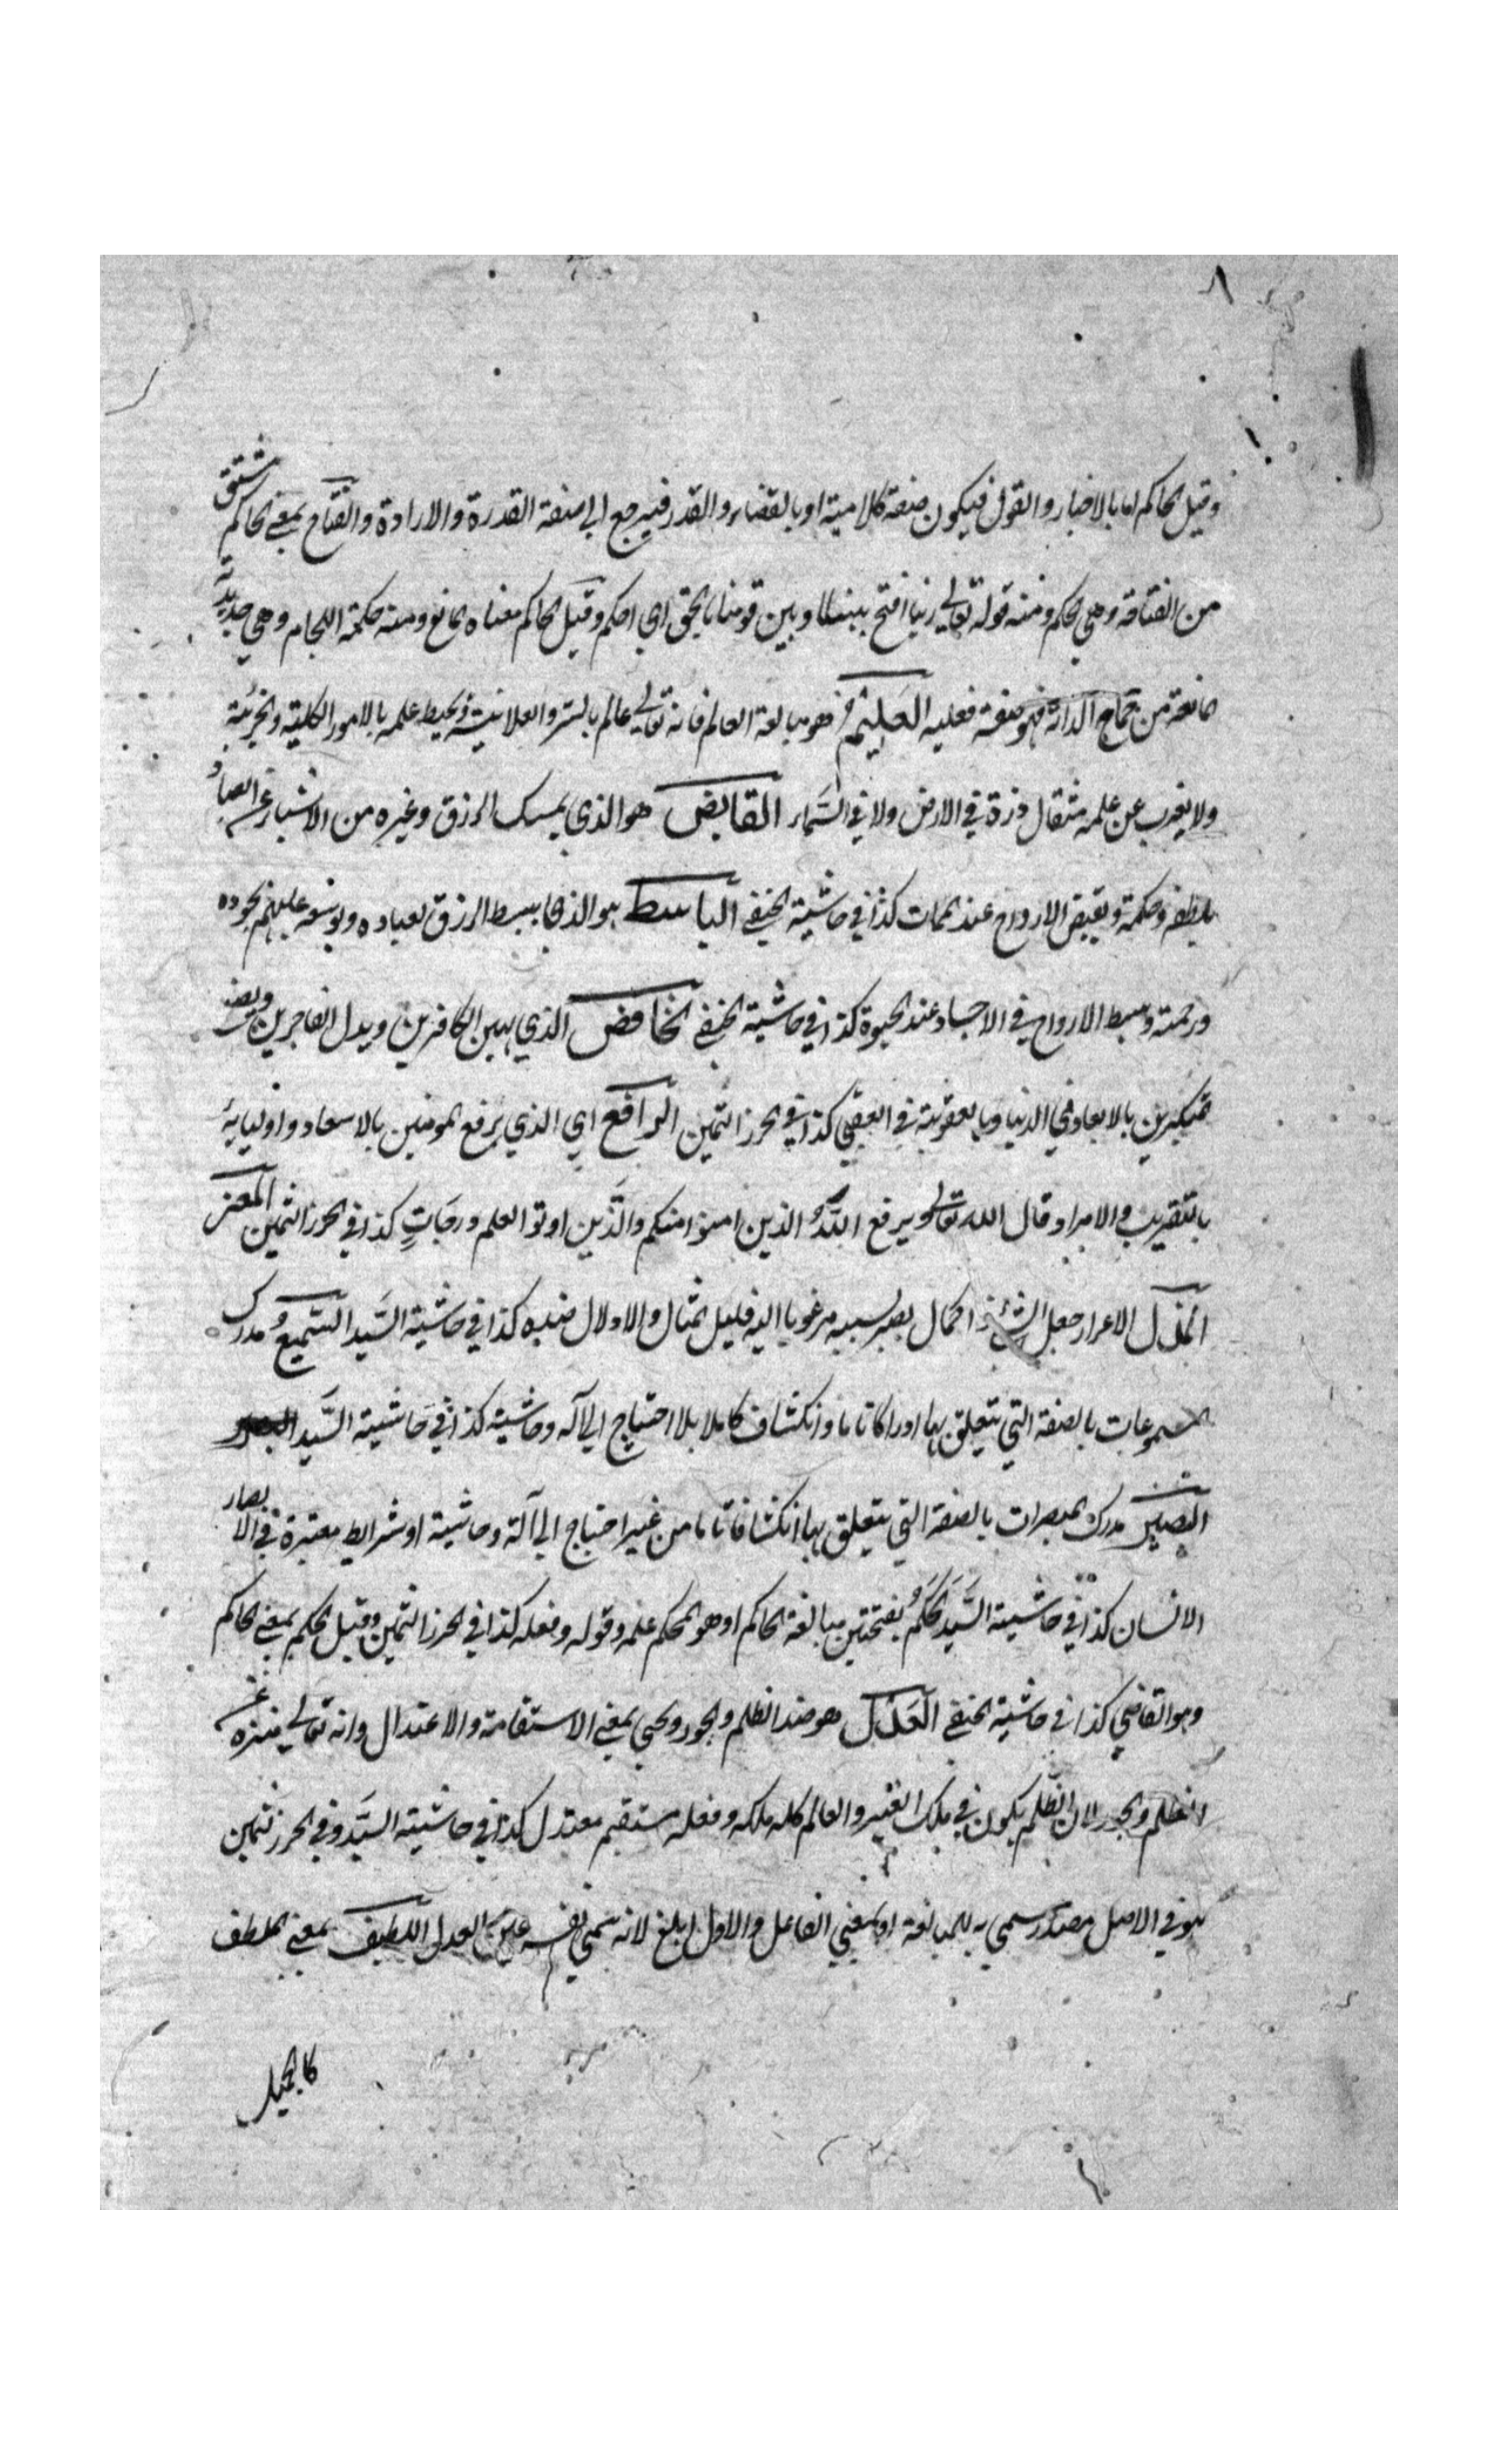 ٨
وقيل الحاكم اما بالاخبار والقول فيكون صفة كلامية او بالقضاء والقدر فيرجع الى صفة القدرة والارادة والفتاح بمعنى الحاكم مشتق
من الفتاحة وهي الحكم ومنه قوله تعالى ربنا افتح بيننا وبين قومنا بالحق اي احكم وقيل الحاكم معناه المانع ومنه حكمة اللجام وهي حديدة
مانعة من جماح الدابة فهو صفة فعلية العَلِيْم هو مبالغة العالم فانه تعالى عالم بالسر والعلانية ومحيط علمه بالامور الكلية والجزئية
ولا يعزب عن علمه مثقال ذرة في الارض ولا في السَّماء القابض هو الذي يمسك الرزق وغيره من الاشياء عن العباد
بلطفه وحكمة ويقبض الارواح عند الممات كذا في حاشية الحنفي الباسط هو الذي يبسط الرزق لعباده ويوسعه عليهم بجوده
ورحمته ويبسط الارواح في الاجساد عند الحيوة كذا في حاشية الحنفي الخافض الذي يهين الكافرين ويذل الفاجرين ويضع
المتكبرين بالابعاد في الدنيا وبالعقوبة في العقبى كذا في الحرز الثمين الرافع اي الذي يرفع المومنين بالاسعاد واوليايه
بالتقريب والامداد قال الله تعالى يرفع اللهُ الذين امنوا منكم والَّذين اوتوا العلم درجاتٍ كذا في الحرز الثمين المعز
المذل الاعزاز جعل الشئ ذا كمال يصير بسببه مرغوبا اليه قليل المثال والاذلال ضده كذا في حاشية السَّيد السَّميعُ مدرك
المسموعات بالصفة التي يتعلق بها ادراكا تاما وانكشافا كاملا بلا احتياج الى آله وحاشية كذا في حاشية السَّيد
البصير مدرك المبصرات بالصفة التي يتعلق بها انكشافا تاما من غير احتياج الى آلة وحاشية او شرايط معتبرة في الابصار
الانسان كذا في حاشية السَّيد الحَكَمُ بفتحتين مبالغة الحاكم او هو المحكم علمه وقوله وفعله كذا في الحرز الثمين وقيل الحكم بمعنى الحاكم
وهو القاضي كذا في حاشية الحنفي العَدْل هو ضد الظلم والجور ويجي بمعنى الاستقامة والاعتدال وانه تعالى منزه عن
الظلم والجور لان الظلم يكون في ملك الغير والعالم كله ملكه وفعله مستقيم معتدل كذا في حاشية السَّيد وفي الحرز الثمين
هو في الاصل مصدر سمي به للمبالغة او بمعنى الفاعل والاول ابلغ لانه سمي نفسه عين العدل اللطيف بمعنى الملطف
كالجميل